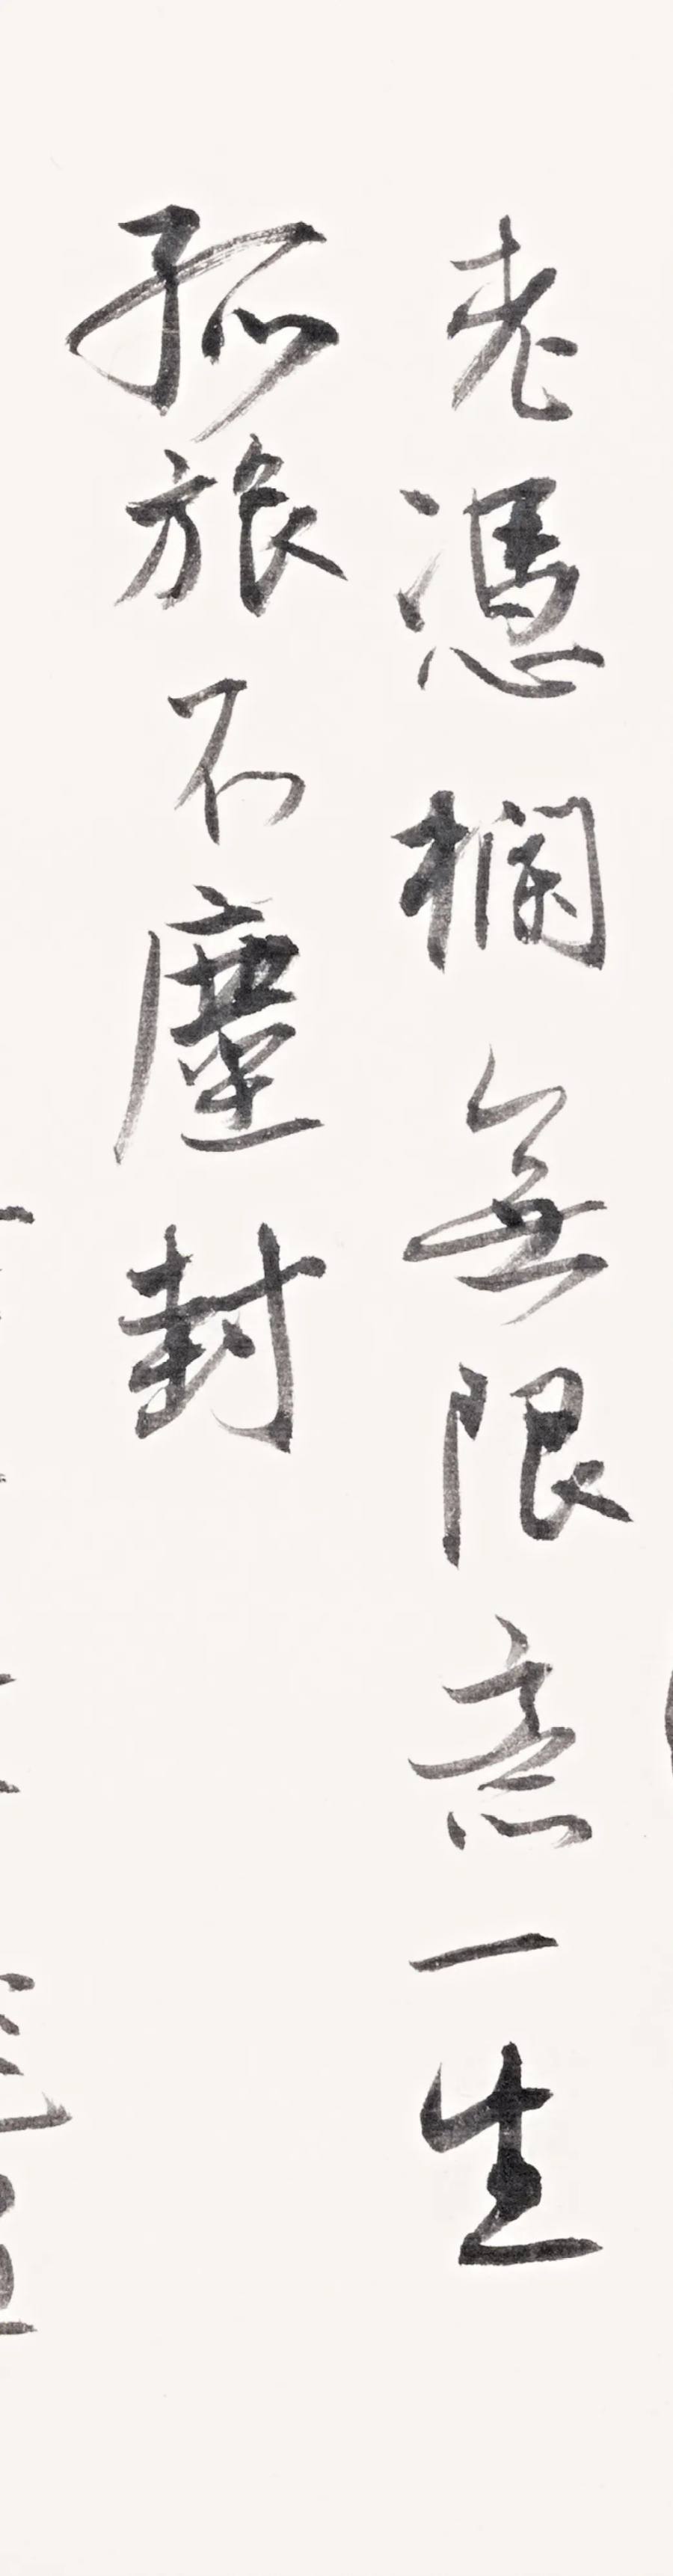 老憑欄無限意一生
孤旅不塵封